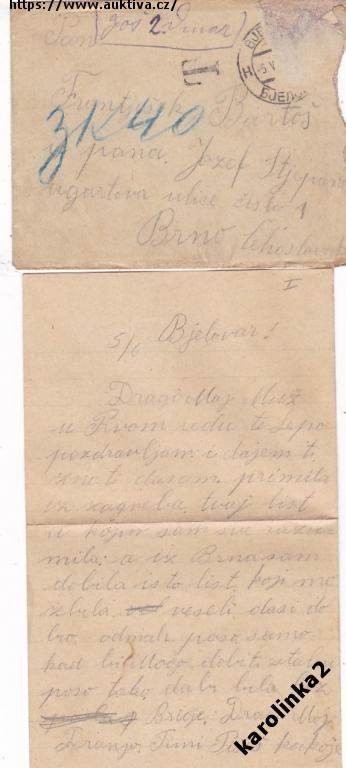 https://www.auktiva.cz/
Pan još 2. Dinar
T
František Bartoš
3K40
u pana Jozef Stjepan
ugartova ulice čisto 1
Brno Čehoslov
I
5/6 Bjelovar!
Dragi Moj Muž
u Prvom redu te Lepo
pozdravljam i dajem ti
znati dasam primila
iz zagreba tvoj list
u kojim sam sve razu-
mila a iz Brna sam
dobila isto list koji me
veseli dasi do
bro odmah poso samo
kad bi Mogo dobiti stalni
poso tako da bi bila
Brige Dragi Moj
Franjo Pišeš kakoje
karolinka2